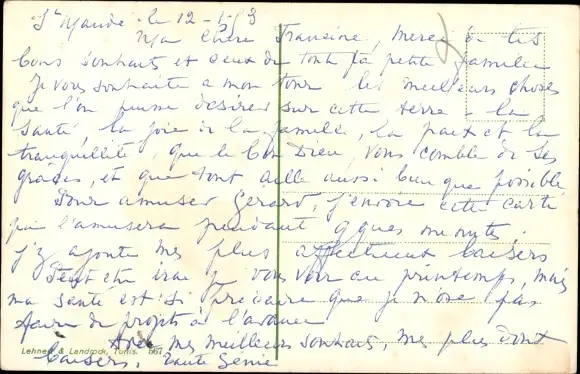 St Mandé le 12-1-53
Ma Chère Francine, Merci de tes
bons souhaits et ceux de toute ta petite famille
Je vous souhaite a mon tour les meilleurs choses
que l'on puisse désirer sur cette terre - la
santé, la joie de la famille, la paix et la
tranquillité, que le bon Dieu, vous comble de ses
grâces, et que tout aille aussi bien que possible
Pour amuser Gérard, j'envoie cette carte
qui l'amusera pendant qques minutes.
j'y ajoute mes plus affectueux baisers
Peut être irai je vous voir au printemps, mais
ma santé est si précaire que je n'ose pas
faire de projets à l'avance
Avec mes meilleurs souhaits, mes plus doux
baisers. Tante Génie
Lehnert & Landrock, Tunis. 667